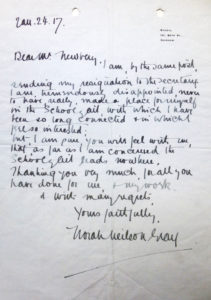 Jan. 29. 17.
Dear Mr Newbery. I am, by the same post,
sending my resignation to the Secretary
I am, tremendously disappointed, never
to have really made a place for myself
in the School of art with which I have
been so long connected & in which
I'm so interested:
but I am sure you will feel with me,
that as far as I am concerned the
School of art leads nowhere.
Thanking you very much for all you
have done for me, & my work
& with many regrets,
Yours faithfully,
Norah Neilson Gray